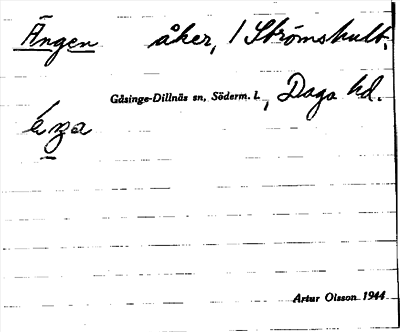 Ängen åker, 1 Strömshult,
Gåsinge-Dillnäs sn, Söderm. l., Daga hd.
Artur Olsson 1944